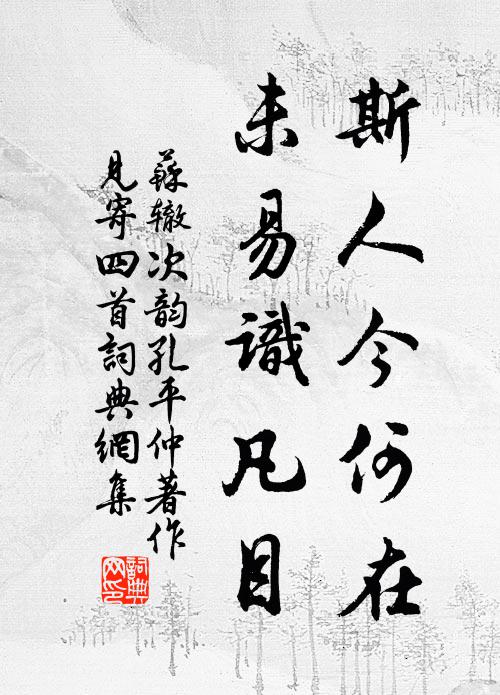 斯人今何在
未易識凡目
蘇辙次韵孔平仲著作
見寄四首詞典網集
詞典网印